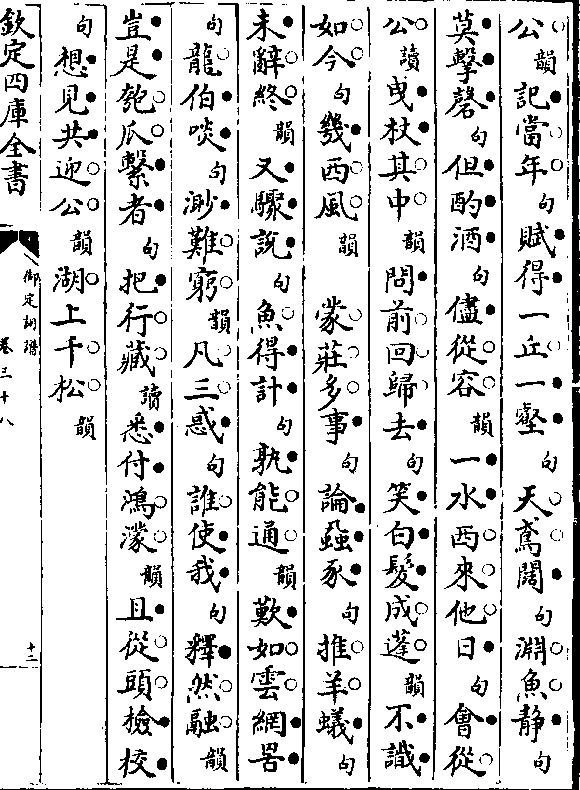 公韻記當年句賦得一丘一壑句天鳶闊句淵魚静句
莫擊磬句但酌酒句儘從容韻一水西來他日句會從
公讀曵杖其中韻問前回歸去句笑白髮成蓬韻不識
如今句幾西風韻　蒙莊多事句論蝨豕句推羊蟻句
未辭終韻又驟說句魚得計句孰能通韻歎如雲網罟
句龍伯啖句渺難窮韻凡三惑句誰使我句釋然融韻
豈是匏瓜繫者句把行藏讀悉付鴻濛韻且從頭檢校
句想見共迎公韻湖上千松韻
欽定四庫全書
御定詞譜
卷三十八
十二